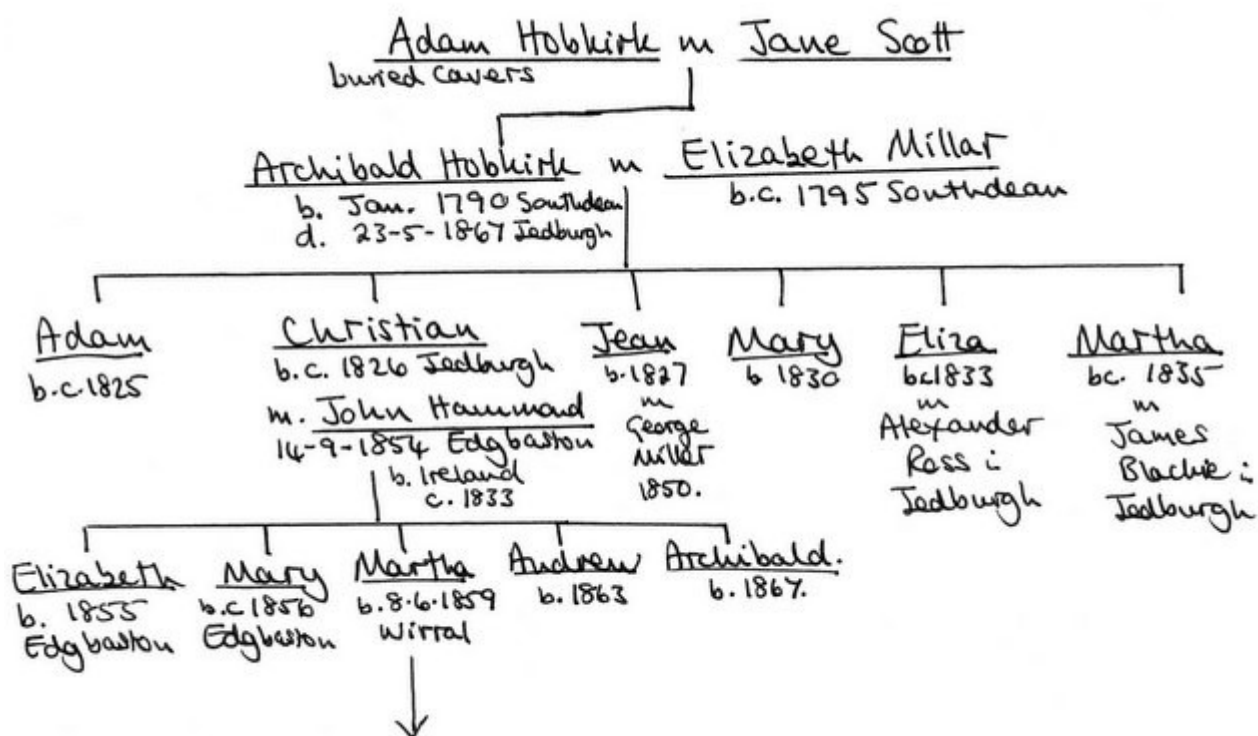 Adam Hobkirk m Jane Scott
buried Cavers
Archibald Hobkirk m Elizabeth Millar
b. Jan. 1790 Southdean
d. 23-5-1867 Jedburgh
b.c. 1795 Southdean
Adam
b.c.1825
Christian
b.c. 1826 Jedburgh
m. John Hammond
14-9-1854 Edgbaston
b. Ireland
c. 1833
Jean
b.1827
m
George
Millar
1850.
Mary
b 1830
Eliza
bc1833
m
Alexander
Ross in
Jedburgh
Martha
bc. 1835
m
James
Blackie in
Jedburgh
Elizabeth
b. 1855
Edgbaston
Mary
b.c 1856
Edgbaston
Martha
b.8.6.1859
Wirral
Andrew
b.1863
Archibald.
b.1867.